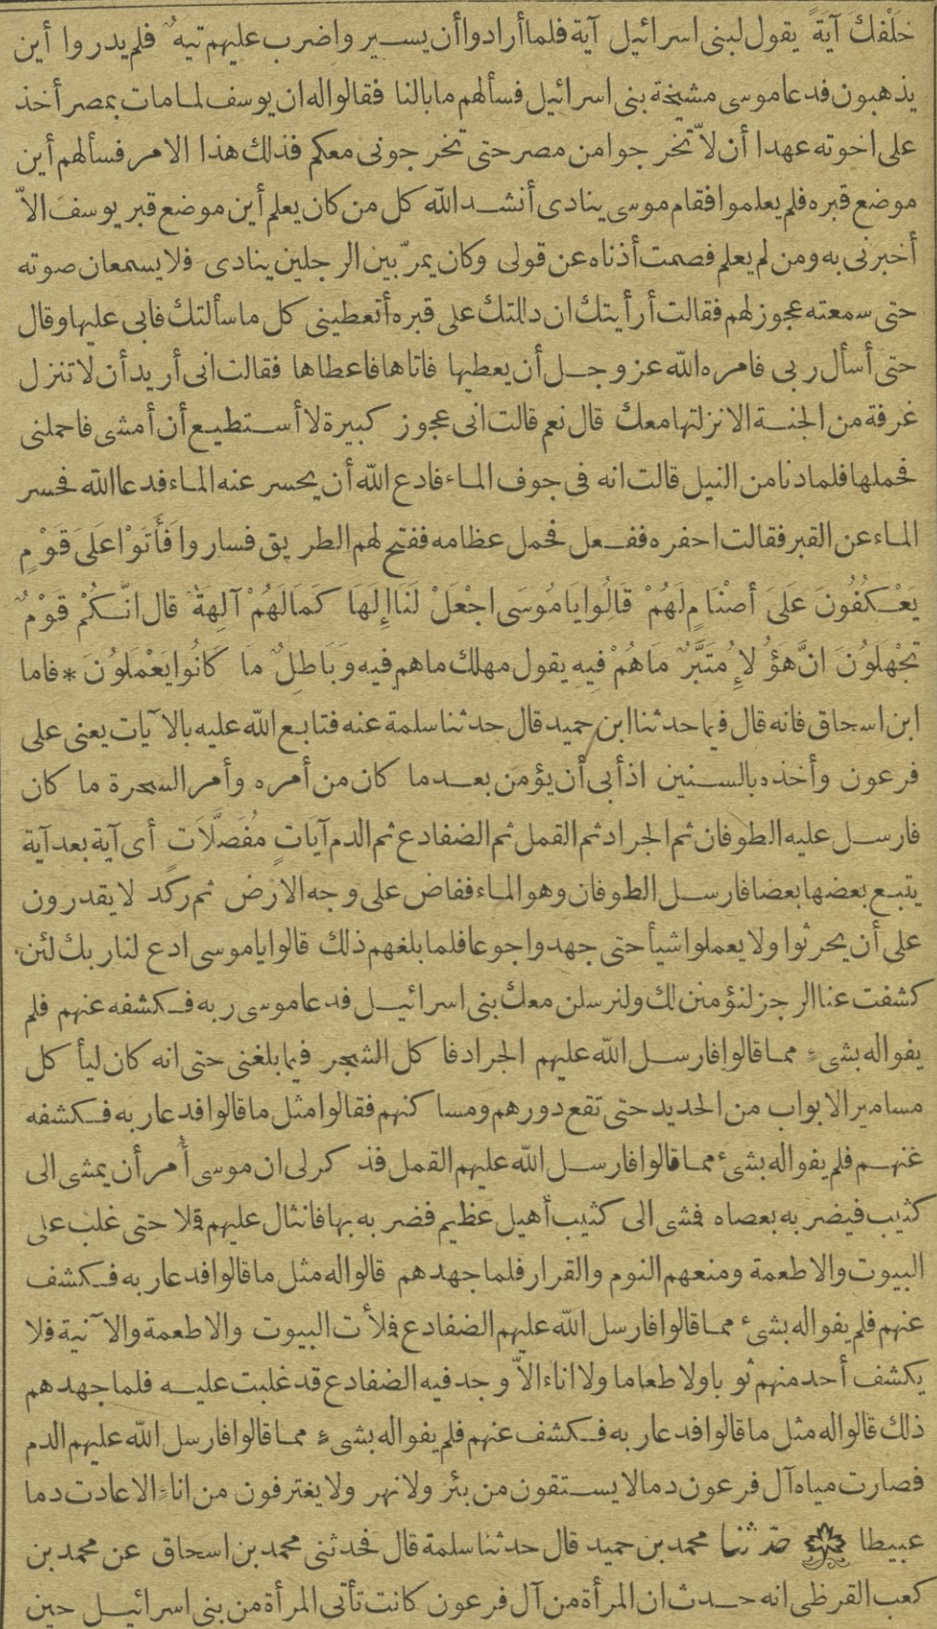 خَلْفَكَ آيَةً يقول لبنى اسرائيل آية فلما أرادوا أن يسير واضرب عليهم تيهٌ فلم يدروا أين
يذهبون فدعا موسى مشيخة بنى اسرائيل فسألهم ما بالنا فقالوا له ان يوسف لما مات بمصر أخذ
على اخوته عهدا أن لاّ تخرجوا من مصر حتى تخرجونى معكم فذلك هذا الامر فسألهم أين
موضع قبره فلم يعلموا فقام موسى ينادى أنشد الله كل من كان يعلم أين موضع قبر يوسف الاّ
أخبرنى به ومن لم يعلم فصمت أذناه عن قولى وكان يمرّ بين الرجلين ينادى فلا يسمعان صوته
حتى سمعته عجوز لهم فقالت أرأيتك ان دللتك على قبره أتعطينى كل ما سألتك فابى عليها وقال
حتى أسأل ربى فامره الله عز وجل أن يعطيها فاتاها فاعطاها فقالت انى أريد أن لا تنزل
غرفة من الجنة الا نزلتها معك قال نعم قالت انى عجوز كبيرة لا أستطيع أن أمشى فاحملنى
فحملها فلما دنا من النيل قالت انه فى جوف الماء فادع الله أن يحسر عنه الماء فدعا الله فحسر
الماء عن القبر فقالت احفره ففعل فحمل عظامه ففتح لهم الطريق فساروا فَأَتَوْا عَلَى قَوْمٍ
يَعْكُفُونَ عَلَىَ أَصْنَامٍ لَهُمْ قَالُوا يَا مُوسَى اجْعَلْ لَنَا إِلَهَا كَمَا لَهُمْ آلِهَةٌ قال انَّكُمْ قَوْمٌ
تَجْهَلُونَ انَّ هَؤُلاِءِ مُتَبَّرٌ مَا هُمْ فِيهِ يقول مهلك ما هم فيه وَبَاطِلٌ مَا كَانُوا يَعْمَلُونَ * فاما
ابن اسحاق فانه قال فيما حدثنا ابن حميد قال حدثنا سلمة عنه فتابع الله عليه بالآيات يعنى على
فرعون وأخذه بالسنين اذ أبى أن يؤمن بعد ما كان من أمره وأمر السحرة ما كان
فارسل عليه الطوفان ثم الجراد ثم القمل ثم الضفادع ثم الدم آيَاتٍ مُفَصَّلَاتٍ أى آية بعد آية
يتبع بعضها بعضا فارسل الطوفان وهو الماء ففاض على وجه الارض ثم ركد لا يقدرون
على أن يحرثوا ولا يعملوا شيأ حتى جهدوا جوعا فلما بلغهم ذلك قالوا يا موسى ادع لنا ربك لئن
كشفت عنا الرجز لنؤمنن لك ولنرسلن معك بنى اسرائيل فدعا موسى ربه فكشفه عنهم فلم
يفوا له بشىء مما قالوا فارسل الله عليهم الجراد فا كل الشجر فيما بلغنى حتى انه كان ليأ كل
مسامير الابواب من الحديد حتى تقع دورهم ومسا كنهم فقالوا مثل ما قالوا فدعا ربه فكشفه
عنهم فلم يفوا له بشىء مما قالوا فارسل الله عليهم القمل فذ كر لى ان موسى أُمر أن يمشى الى
كثيب فيضربه بعصاه فمشى الى كثيب أهيل عظيم فضربه بها فانثال عليهم قملا حتى غلب على
البيوت والاطعمة ومنعهم النوم والقرار فلما جهدهم قالوا له مثل ما قالوا فدعا ربه فكشف
عنهم فلم يفوا له بشىء مما قالوا فارسل الله عليهم الضفادع فملأت البيوت والاطعمة والآنية فلا
يكشف أحد منهم ثوبا ولا طعاما ولا اناء الاّ وجد فيه الضفادع قد غلبت عليه فلما جهدهم
ذلك قالوا له مثل ما قالوا فدعا ربه فكشف عنهم فلم يفوا له بشىء مما قالوا فارسل الله عليهم الدم
فصارت مياه آل فرعون دما لا يستقون من بئر ولا نهر ولا يغترفون من اناء الا عادت دما
عبيطا حدثنا محمد بن حميد قال حدثنا سلمة قال فحدثنى محمد بن اسحاق عن محمد بن
كعب القرظى انه حدث ان المرأة من آل فرعون كانت تأتى المرأة من بنى اسرائيل حين